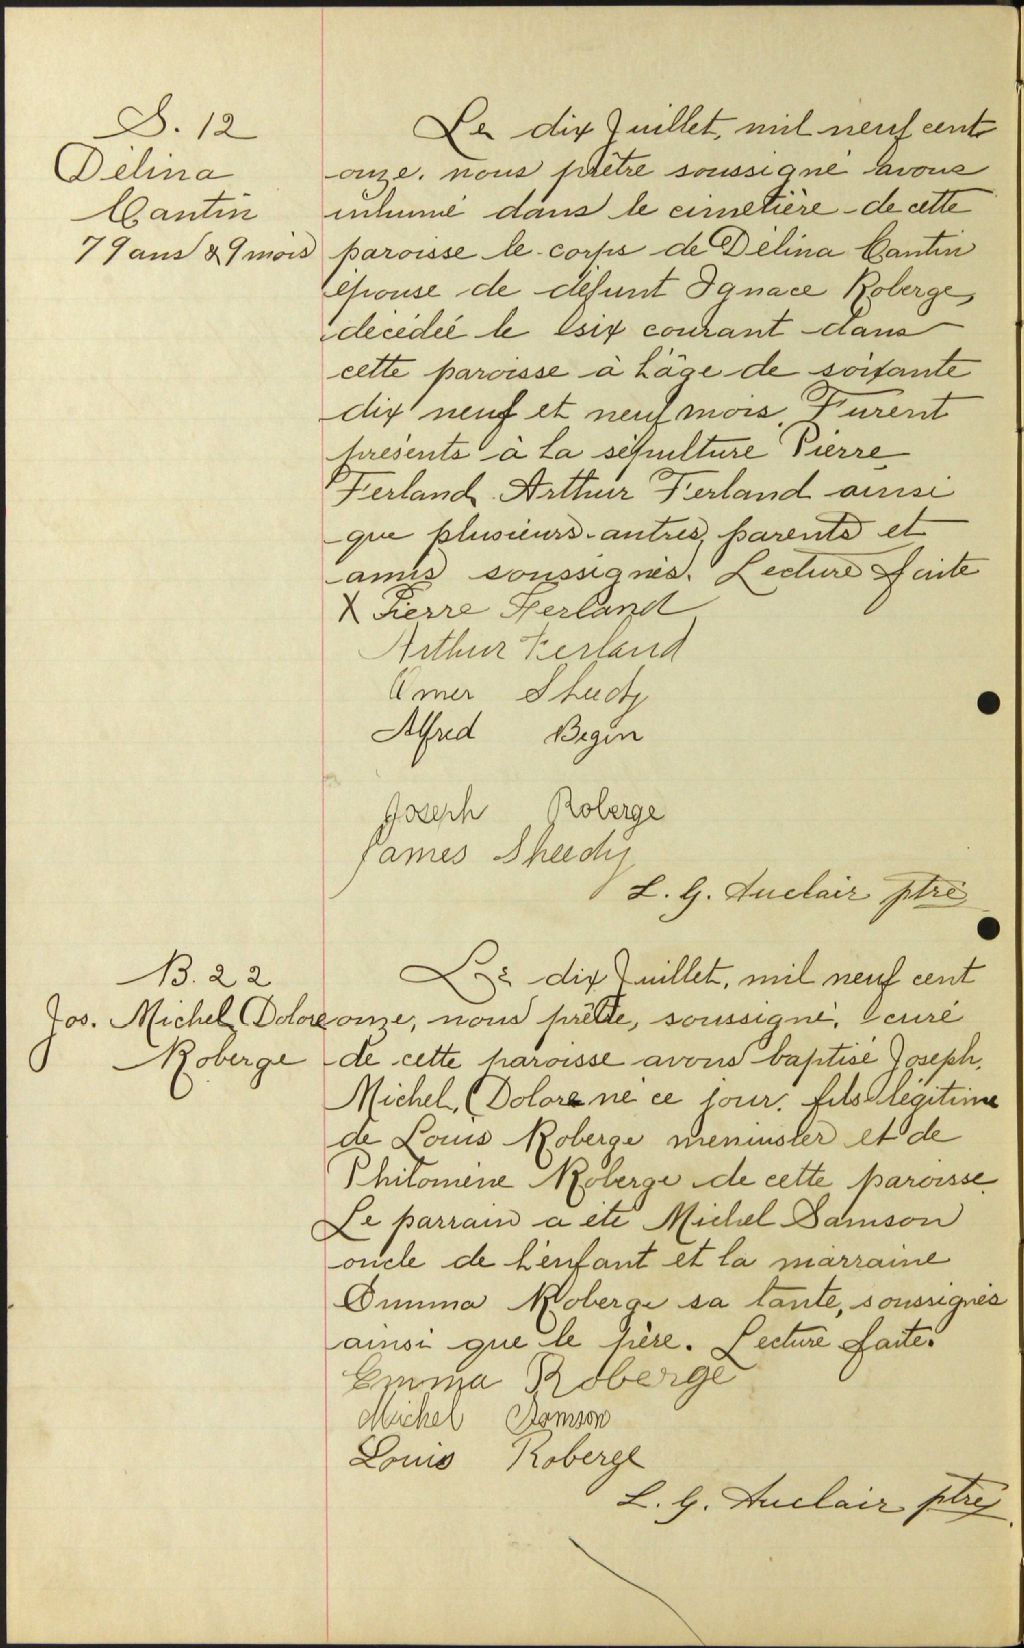 S. 12
Délina
Cantin
79 ans & 9 mois
Le dix Juillet, mil neuf cent
onze. nous prêtre soussigné avons
inhumé dans le cimetière de cette
paroisse le corps de Délina Cantin
épouse de défunt Ignace Roberge,
décédée le six courant dans
cette paroisse à l'âge de soixante
dix neuf et neuf mois. Furent
présents à la sépulture Pierre
Ferland, Arthur Ferland ainsi
que plusieurs autres, parents et
amis soussignés. Lecture faite
X Pierre Ferland
Arthur Ferland
Omer Sheedy
Alfred Begin
Joseph Roberge
James Sheedy
L. G. Auclair ptre
B. 22
Jos. Michel Dolore
Roberge
Le dix Juillet, mil neuf cent
onze, nous prêtre, soussigné, curé
de cette paroisse avons baptisé Joseph,
Michel, Dolore né ce jour. fils légitime
de Louis Roberge menuisier et de
Philomène Roberge de cette paroisse.
Le parrain a été Michel Samson
oncle de l'enfant et la marraine
Emma Roberge sa tante, soussignés
ainsi que le père. Lecture faite.
Emma Roberge
Michel Samson
Louis Roberge
L. G. Auclair ptre